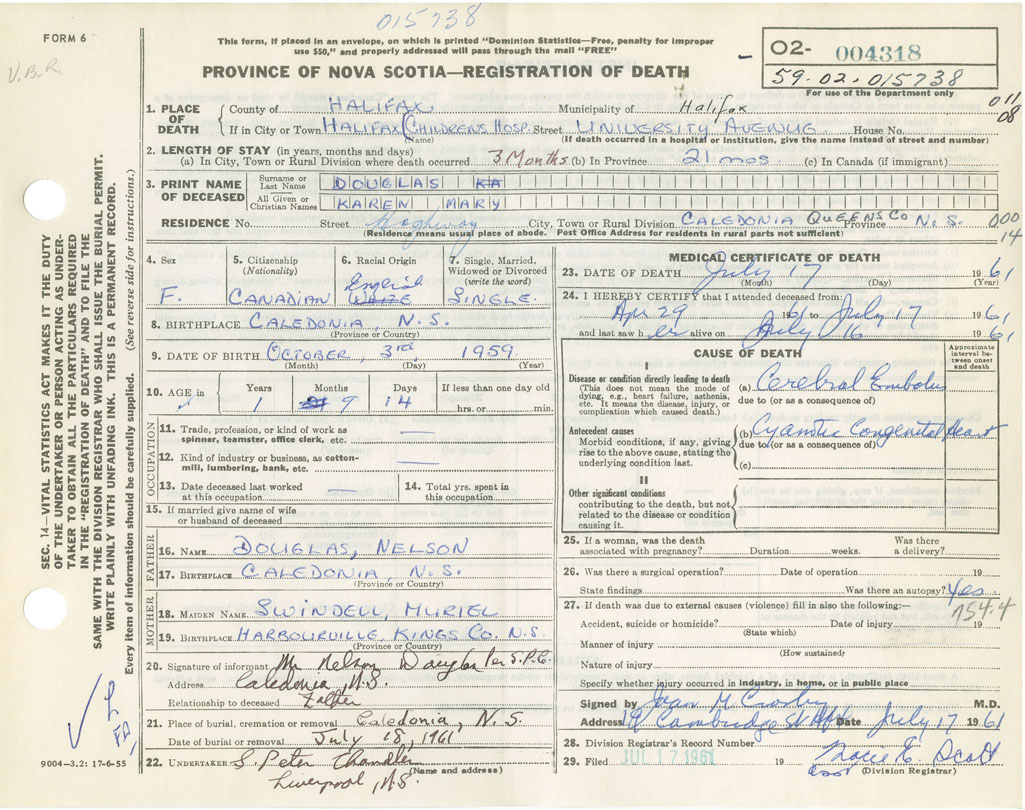 015738
FORM 6
V.B.R.
This form, if placed in an envelope, on which is printed "Dominion Statistics—Free, penalty for improper
use $50," and properly addressed will pass through the mail "FREE"
PROVINCE OF NOVA SCOTIA—REGISTRATION OF DEATH
02- 004318
59.02.015738
For use of the Department only
1. PLACE OF DEATH
County of HALIFAX. Municipality of Halifax
011
08
If in City or Town HALIFAX (CHILDRENS HOSP. Street UNIVERSITY AVENUE House No.
(Name) (If death occurred in a hospital or institution, give the name instead of street and number)
2. LENGTH OF STAY (in years, months and days)
(a) In City, Town or Rural Division where death occurred 3 Months (b) In Province 21 mos (c) In Canada (if immigrant)
3. PRINT NAME OF DECEASED
Surname or Last Name DOUGLAS KA
All Given or Christian Names KAREN MARY
RESIDENCE No. Street Highway City, Town or Rural Division CALEDONIA QUEENS CO Province N.S.
000
14
(Residence means usual place of abode. Post Office Address for residents in rural parts not sufficient)
4. Sex
F.
5. Citizenship
(Nationality)
CANADIAN
6. Racial Origin
English
WHITE
7. Single, Married,
Widowed or Divorced
(write the word)
SINGLE.
8. BIRTHPLACE CALEDONIA, N.S.
(Province or Country)
9. DATE OF BIRTH OCTOBER, 3rd, 1959
(Month) (Day) (Year)
10. AGE in
Years Months Days If less than one day old
1 9 14 hrs. or min.
OCCUPATION
11. Trade, profession, or kind of work as
spinner, teamster, office clerk, etc. —
12. Kind of industry or business, as cotton-
mill, lumbering, bank, etc. —
13. Date deceased last worked
at this occupation —
14. Total yrs. spent in
this occupation
15. If married give name of wife
or husband of deceased
FATHER
16. NAME DOUGLAS, NELSON
17. BIRTHPLACE CALEDONIA, N.S.
(Province or Country)
MOTHER
18. MAIDEN NAME SWINDELL, MURIEL
19. BIRTHPLACE HARBOURVILLE, KINGS CO. N.S.
(Province or Country)
20. Signature of informant Mr Nelson Douglas Per S.P.C.
Address Caledonia, N.S.
Relationship to deceased Father
21. Place of burial, cremation or removal Caledonia, N.S.
Date of burial or removal July 18, 1961
22. UNDERTAKER S. Peter Chandler
(Name and address)
Liverpool, N.S.
MEDICAL CERTIFICATE OF DEATH
23. DATE OF DEATH July 17 1961
(Month) (Day) (Year)
24. I HEREBY CERTIFY that I attended deceased from:
Apr 29 1961 to July 17 1961
and last saw her alive on July 16 1961
CAUSE OF DEATH
Approximate
interval be-
tween onset
and death
I
Disease or condition directly leading to death
(This does not mean the mode of
dying, e.g., heart failure, asthenia,
etc. It means the disease, injury, or
complication which caused death.)
(a) Cerebral Embolus
due to (or as a consequence of)
Antecedent causes
Morbid conditions, if any, giving
rise to the above cause, stating the
underlying condition last.
(b) Cyanotic Congenital Heart
due to (or as a consequence of)
(c)
II
Other significant conditions
contributing to the death, but not
related to the disease or condition
causing it.
25. If a woman, was the death
associated with pregnancy? Duration weeks. Was there
a delivery?
26. Was there a surgical operation? Date of operation 19
State findings Was there an autopsy? Yes
754.4
27. If death was due to external causes (violence) fill in also the following:—
Accident, suicide or homicide? Date of injury 19
(State which)
Manner of injury
(How sustained)
Nature of injury
Specify whether injury occurred in industry, in home, or in public place
Signed by Jean M Crosby M.D.
Address 19 Cambridge St Hfx Date July 17 1961
28. Division Registrar's Record Number
29. Filed JUL 17 1961 19 Marie E. Scott
Asst (Division Registrar)
SEC. 14—VITAL STATISTICS ACT MAKES IT THE DUTY
OF THE UNDERTAKER OR PERSON ACTING AS UNDER-
TAKER TO OBTAIN ALL THE PARTICULARS REQUIRED
IN THE "REGISTRATION OF DEATH" AND TO FILE THE
SAME WITH THE DIVISION REGISTRAR WHO SHALL ISSUE THE BURIAL PERMIT.
WRITE PLAINLY WITH UNFADING INK. THIS IS A PERMANENT RECORD.
Every item of information should be carefully supplied. (See reverse side for instructions.)
9004—3.2: 17-6-55